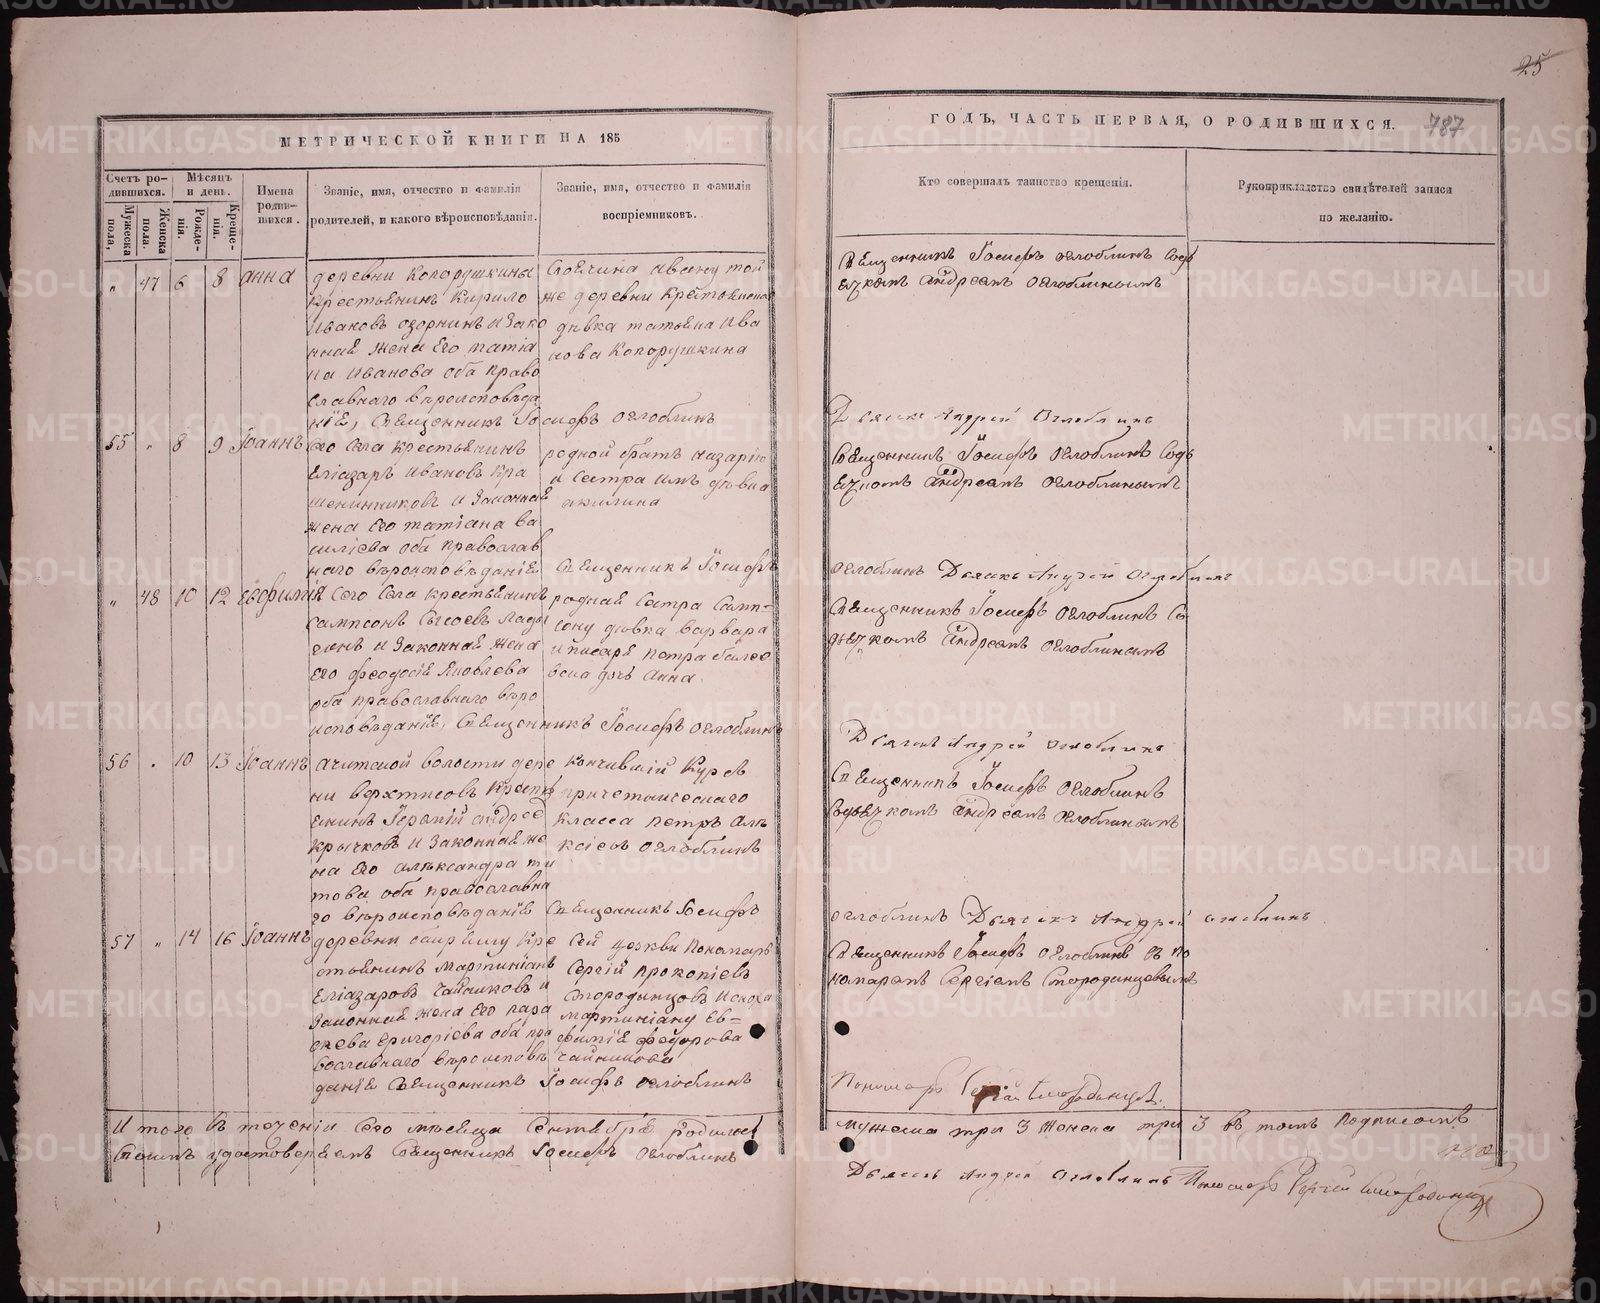 25
МЕТРИЧЕСКОЙ КНИГИ НА 185
ГОДЪ, ЧАСТЬ ПЕРВАЯ, О РОДИВШИХСЯ.
787
Счетъ ро-
дившихся.
Мужеска пола,
Женска пола.
Мѣсяцъ
и день.
Рожде-
нія.
Креще-
нія.
Имена
родив-
шихся.
Званіе, имя, отчество и фамилія
родителей, и какого вѣроисповѣданія.
Званіе, имя, отчество и фамилія
воспріемниковъ.
Кто совершалъ таинство крещенія.
Рукоприкладство свидѣтелей записи
по желанію.
„ 47 6 8 Анна
деревни Копорушкины
крестьянинъ Кирило
Ивановъ и зако
нная жена его татіа
на Иванова оба право
славнаго вѣроисповѣда
нія, Священникъ Іосифъ Оглоблинъ
той
же деревни крестьянска
дѣвка татьяна Ива
нова Копорушкина
Священникъ Іосифъ Оглоблинъ
Андреемъ Оглоблинымъ
Дьячекъ Андрей Оглоблинъ
55 „ 8 9 Іоаннъ
Сего Села крестьянинъ
Еліазаръ Ивановъ Кра
шенинниковъ и Законная
жена его татіана ва
силіева оба православ
наго вѣроисповѣданія
Священникъ Іосифъ
родной братъ назарій
и Сестра имъ дѣвка
акилина
Священникъ Іосифъ Оглоблинъ
Андреемъ Оглоблинымъ
Оглоблинъ Дьячекъ Андрей Оглоблинъ
„ 48 10 12 Евфимія
Сего Села крестьянинъ
Сампсонъ Сысоевъ Лады
гинъ и Законная жена
его феодосія Яковлева
оба православнаго вѣро
исповѣданія, Священникъ Іосифъ Оглоблинъ
родная Сестра Самп-
сону дѣвка варвара
и писаря петра
дочь Анна.
Священникъ Іосифъ Оглоблинъ Съ
дьячкомъ Андреемъ Оглоблинымъ
Дьячекъ Андрей Оглоблинъ
56 „ 10 13 Іоаннъ
Ачитской волости дере
ни верхтисовъ Крестья
Андрее
Крычковъ и Законная же
на его александра ти
това, оба православна
го вѣроисповѣданія Священникъ Іосифъ
Кончившій Курсъ
причетническаго
Класса петръ Але
ксіевъ Оглоблинъ
Священникъ Іосифъ Оглоблинъ
Съ дьячкомъ Андреемъ Оглоблинымъ
Оглоблинъ Дьячекъ Андрей Оглоблинъ
57 „ 14 16 Іоаннъ
деревни Кре
стьянинъ Мартиніанъ
Еліазаровъ Чайниковъ и
Законная жена его пара
скева Григоріева оба пра
вославнаго вѣроисповѣ
данія Священникъ Іосифъ Оглоблинъ
Сей церкви Пономарь
Сергій прокопіевъ
Смородинцовъ и сноха
Мартиніану Ев=
фимія федорова
Чайникова
Священникъ Іосифъ Оглоблинъ съ по
номаремъ Сергіемъ Смородинцевымъ
Пономарь Сергій Смородинцевъ.
И того Въ теченіи Сего мѣсяца Сентября родилось
мужеска три 3 Женска три 3 въ томъ подписомъ
Своимъ удостовѣряемъ Священникъ Іосифъ Оглоблинъ
Дьячекъ Андрей Оглоблинъ Пономарь Сергій Смородинцевъ
METRIKI.GASO-URAL.RU